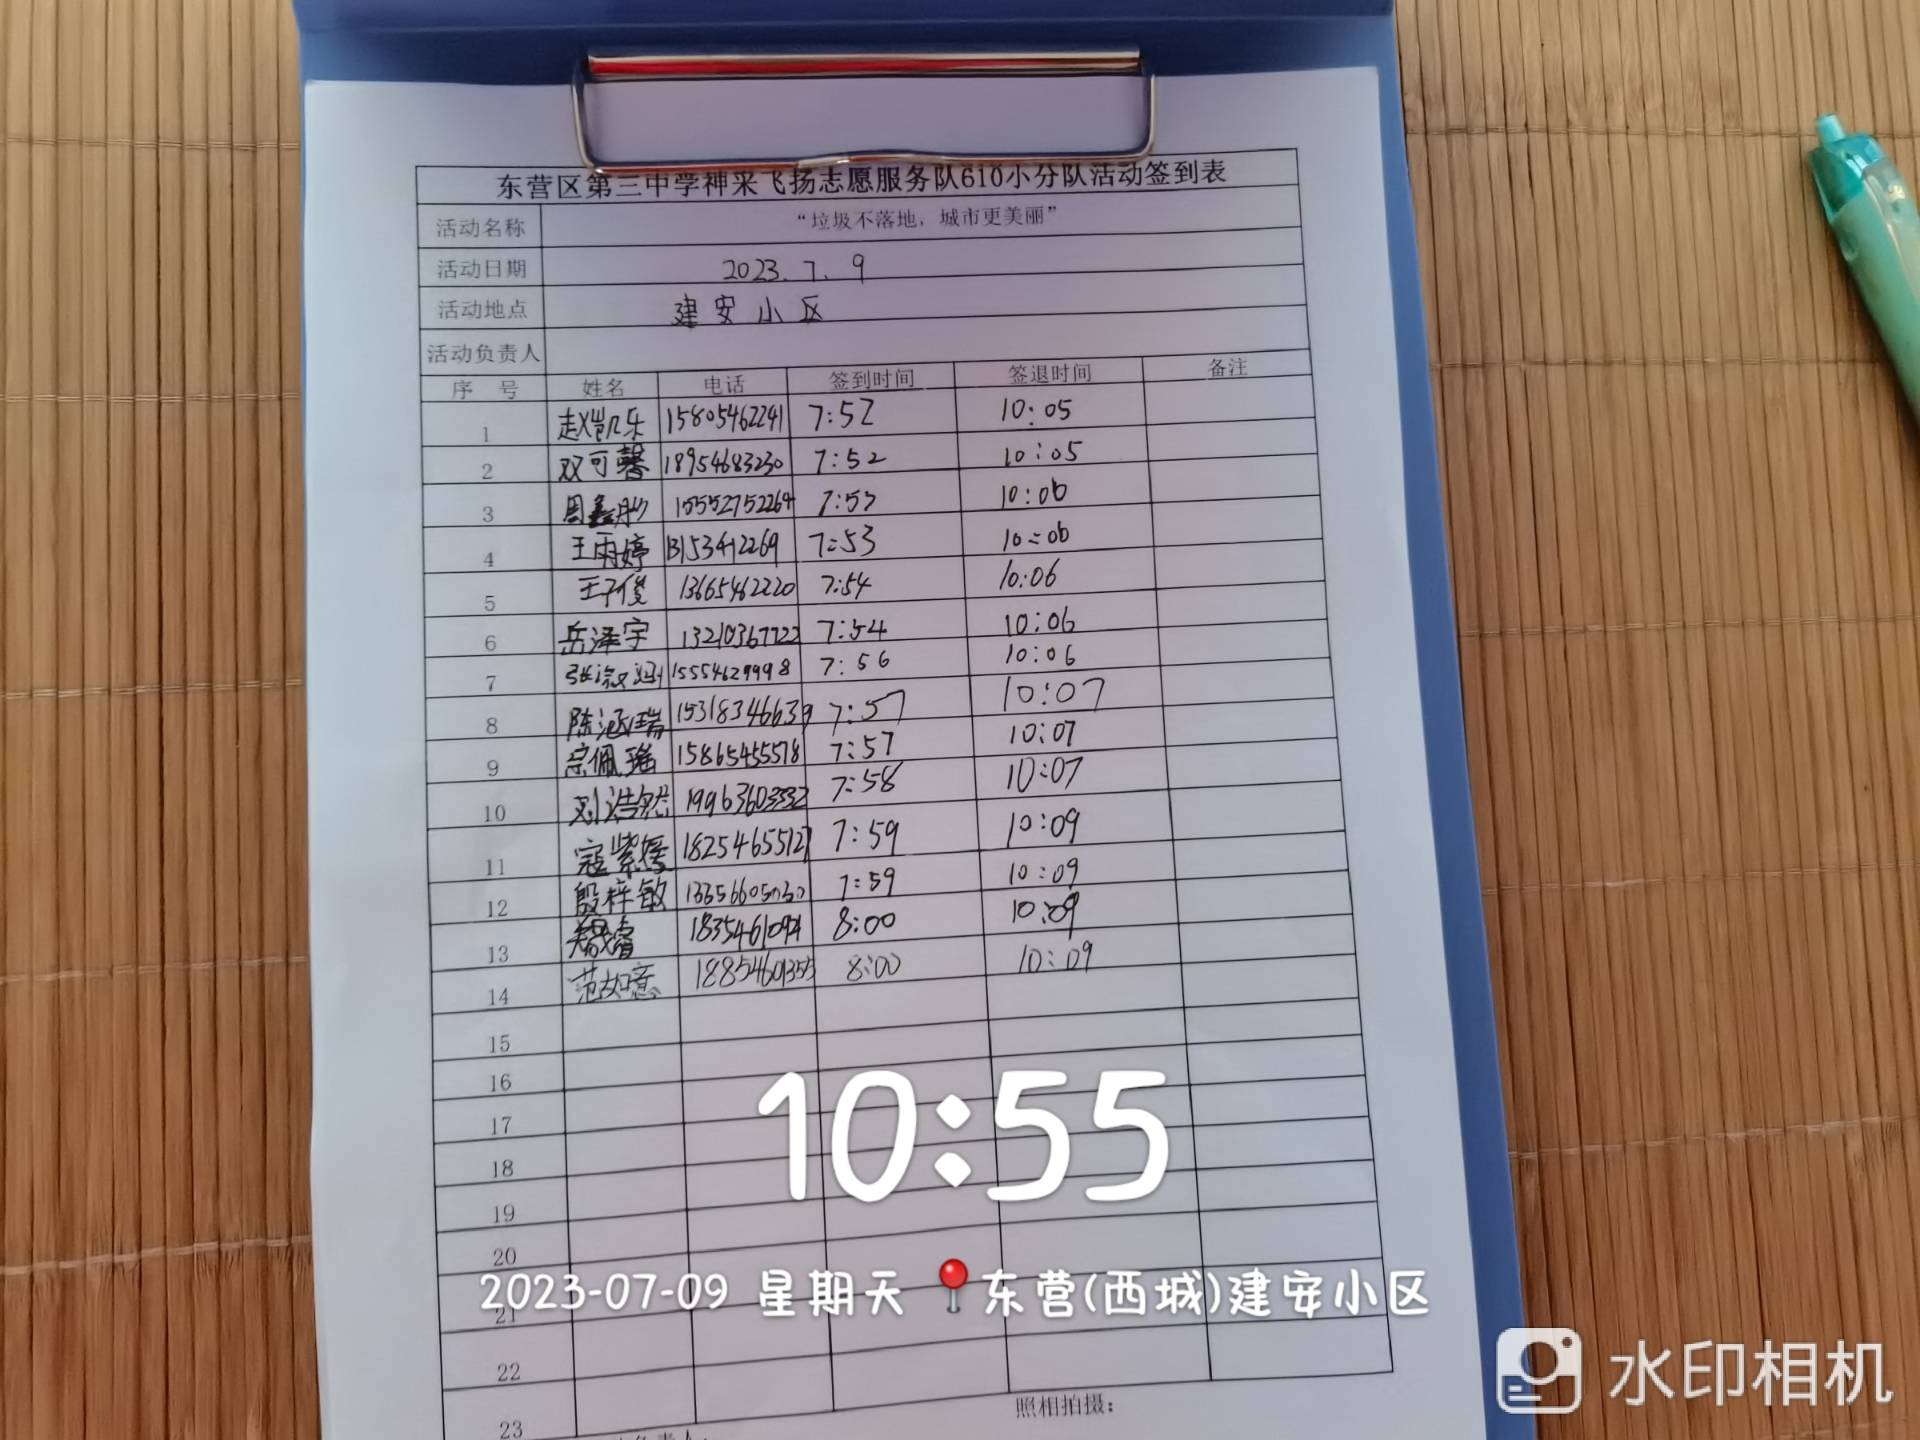 东营区第三中学神采飞扬志愿服务队610小分队活动签到表
活动名称 “垃圾不落地，城市更美丽”
活动日期 2023.7.9
活动地点 建安小区
活动负责人
序 号 姓名 电话 签到时间 签退时间 备注
1 赵凯乐 15805462241 7:52 10:05
2 双可馨 18954683230 7:52 10:05
3 周鑫彤 15552752264 7:53 10:06
4 王雨婷 13153412269 7:53 10:06
5 王子俊 13665462220 7:54 10:06
6 岳泽宇 13210367722 7:54 10:06
7 15554629998 7:56 10:06
8 陈涵瑞 15318346639 7:57 10:07
9 宗佩瑶 15865455578 7:57 10:07
10 刘浩然 19963603332 7:58 10:07
11 寇紫媛 18254655127 7:59 10:09
12 殷梓敏 7:59 10:09
13 8:00 10:09
14 范如意 18854601355 8:00 10:09
15
16
17
18
19
20
21
22
23
照相拍摄：
10:55
2023-07-09 星期天 东营(西城)建安小区
水印相机